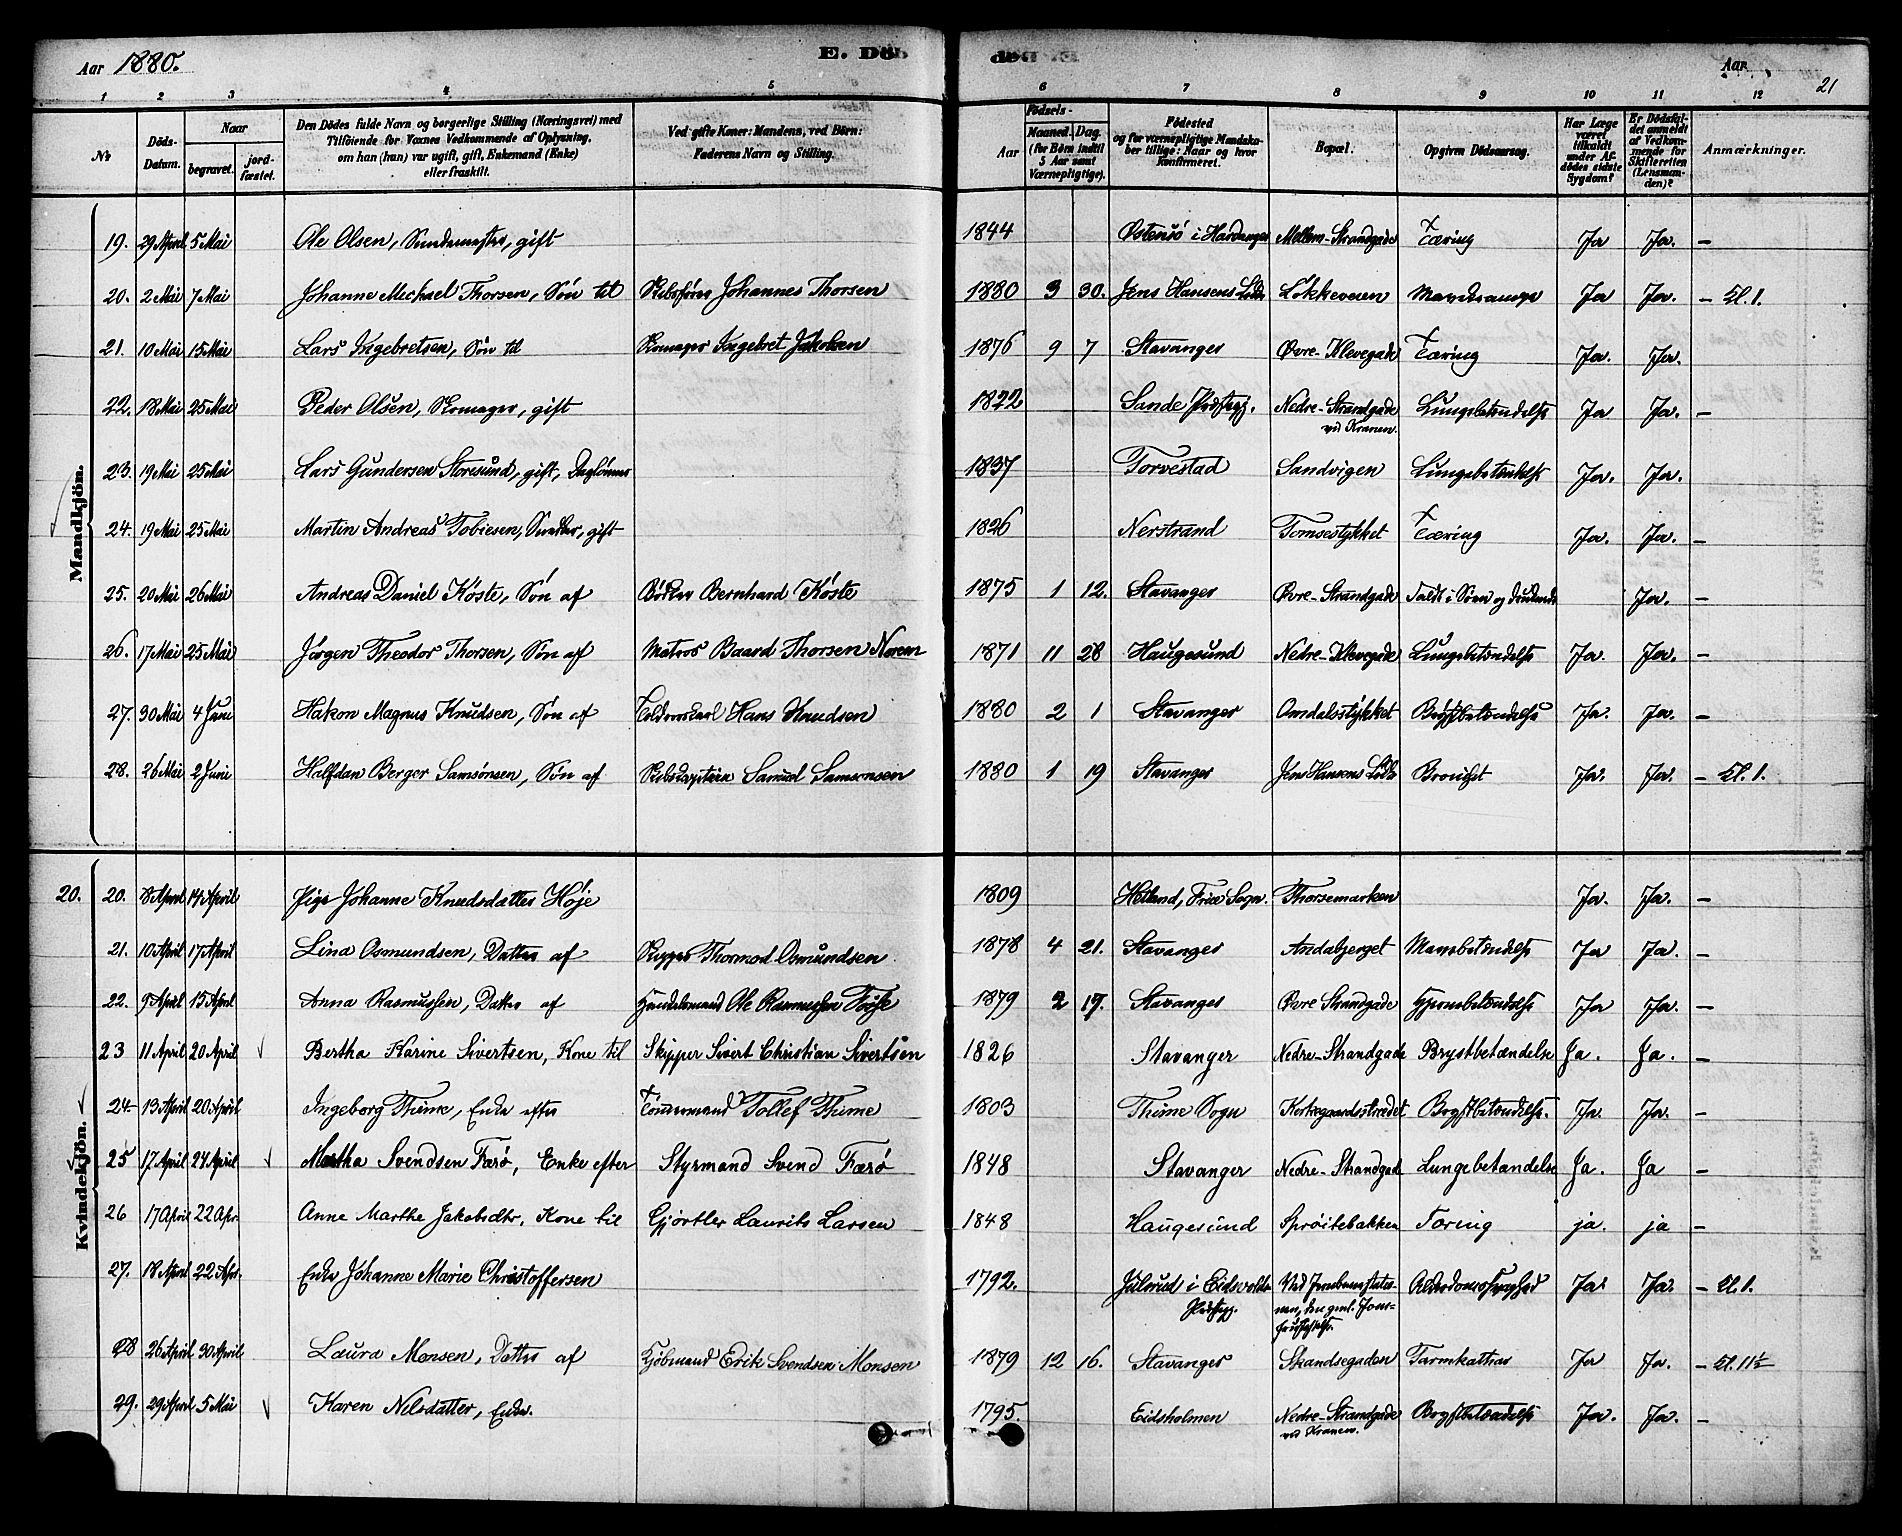 Aar 1880.
E. Död
Aar
21
1 2 3 4 5 6 7 8 9 10 11 12
№
Döds-Datum.
Naar
begravet.
jord-fæstet.
Den Dödes fulde Navn og borgerlige Stilling (Næringsvei) med
Tilföiende for Voxnes Vedkommende af Oplysning,
om han (hun) var ugift, gift, Enkemand (Enke)
eller fraskilt.
Ved gifte Koner: Mandens, ved Börn:
Faderens Navn og Stilling.
Födsels-
Aar
Maaned. Dag.
(for Börn indtil
5 Aar samt
Værnepligtige).
Födested
og for værnepligtige Mandska-
ber tillige: Naar og hvor
konfirmeret.
Bopæl.
Opgiven Dödsaarsag.
Har Læge
været
tilkaldt
under Af-
dödes sidste
Sygdom?
Er Dödsfal-
det anmeldt
af Vedkom-
mende for
Skifteretten
(Lensman-
den)?
Anmærkninger.
Mandkjön.
19. 29 April 5 Mai Ole Olsen, gift 1844 Østensö i Hardanger Mellem-Strandgade Tæring Ja Ja. –
20. 2 Mai 7 Mai Johanne Michael Thorsen, Søn til Skibsfører Johannes Thorsen 1880 3 30. Jens Hansens Løkkeveien Mavekrampe Ja Ja. – Kl. 1.
21. 10 Mai 15 Mai Lars Ingebretsen, Søn til Skomager Ingebret Jakobsen 1876 9 7 Stavanger Øvre-Klevegade Tæring Ja. Ja.
22. 18 Mai 25 Mai Peder Olsen, Skomager, gift 1822 Sande Præstegj. Nedre-Strandgade ved Kranen. Lungebetændelse Ja Ja. –
23. 19 Mai 25 Mai Lars Gundersen Storesund, gift, Daglønner 1837 Torvestad Sandvigen Lungebetændelse Ja. Ja. –
24. 19 Mai 25 Mai Martin Andreas Tobiesen, Snedker, gift 1826 Nerstrand Tomsestykket Tæring Ja. Ja. –
25. 20 Mai 26 Mai Andreas Daniel Köste, Søn af Bødker Bernhard Köste 1875 1 12. Stavanger Øvre-Strandgade Faldt i Søen og druknede Ja. –
26. 17 Mai 25 Mai Jørgen Theodor Thorsen, Søn af Matros Baard Thorsen Norem 1871 11 28 Haugesund Nedre-Klevegade Lungebetændelse Ja. Ja. –
27. 30 Mai 4 Juni Hakon Magnus Knudsen, Søn af Hans Knudsen 1880 2 1 Stavanger Omdalsstykket Brystbetændelse Ja. Ja. –
28. 26 Mai 2 Juni Halfdan Berger Samsönsen, Søn af Skibskaptein Samuel Samsonsen 1880 1 19 Stavanger Jens Hansens Ja. Ja. – Kl. 1.
Kvindekjön.
20. 20. 8 April 14 April Pige Johanne Knudsdatter Höje 1809 Sogn. Thorsemarken Ja. Ja. –
21. 10 April 17 April Lina Osmundsen, Datter af Skipper Thormod Osmundsen 1878 4 21. Stavanger Andabjerget Mavebetændelse Ja Ja. –
22. 9 April 15 April Anna Rasmussen, Datter af Handelsmand Ole Rasmussen 1879 2 17. Stavanger Øvre Strandgade Hjernebetændelse Ja Ja. –
23 11 April 20 April Bertha Karine Sivertsen, Kone til Skipper Sivert Christian Sivertsen 1826 Stavanger Nedre-Strandgade Brystbetændelse Ja. Ja. –
24 13 April 20 April Ingeborg Thime, Enke efter Tømmermand Tollef Thime 1803 Thime Sogn Kirkegaardsstrædet Brystbetændelse. Ja. Ja. –
25 17 April 24 April Martha Svendsen Færö, Enke efter Styrmand Svend Færö 1848 Stavanger Nedre-Strandgade Lungebetændelse Ja. Ja –
26 17 April 22 Apr. Anne Marthe Jakobsdtr. Kone til Gjörtler Laurits Larsen 1848 Haugesund Spröitebakken Tæring ja. ja –
27. 18 April 22 Apr. Enke Johanne Marie Christoffersen 1792. Julsrud i Eidsvolds Præstegj. Ved Jernbanestatio- Alderdomssvaghed Ja. Ja. – Kl. 1.
28 26 April 30 April Laura Monsen, Datter af Kjøbmand Erik Svendsen Monsen 1879 12 16. Stavanger Strandsegaden Tarmkathar Ja Ja. – Kl. 11½
29. 29 April 5 Mai Karen Nilsdatter, Enke. 1795. Eidsholmen Nedre-Strandgade ved Kranen. Brystbetændelse Ja. Ja. –